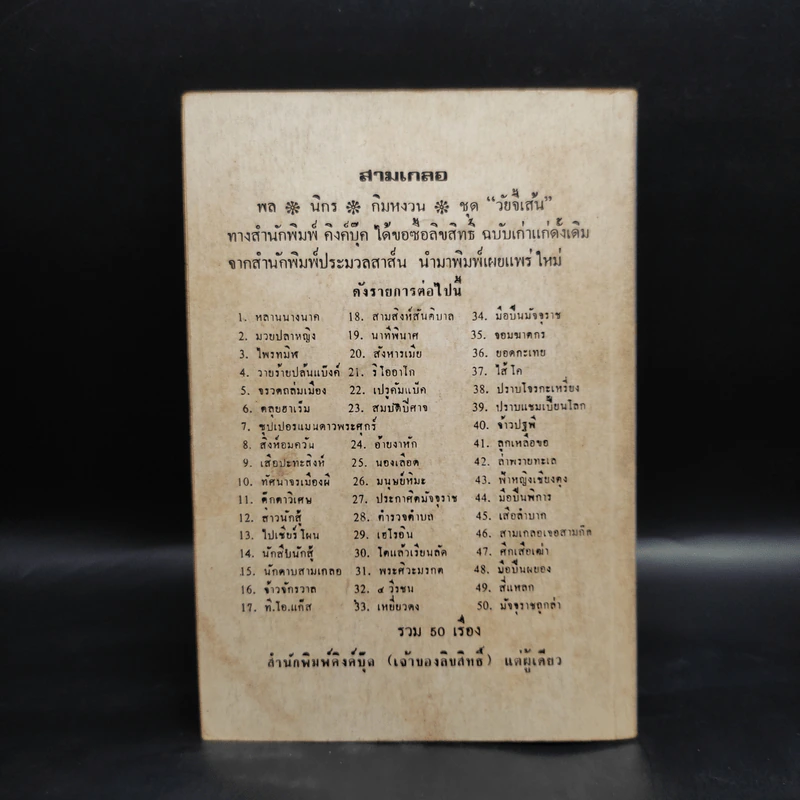 สามเกลอ
พล ❋ นิกร ❋ กิมหงวน ❋ ชุด "วัยจี้เส้น"
ทางสำนักพิมพ์ คิงค์บุ๊ค ได้ขอซื้อลิขสิทธิ์ ฉบับเก่าแก่ดั้งเดิม
จากสำนักพิมพ์ประมวลสาส์น นำมาพิมพ์เผยแพร่ใหม่
ดังรายการต่อไปนี้
1. หลานนางนาค 18. สามสิงห์สันติบาล 34. มือปืนมัจจุราช
2. มวยปลาหญิง 19. นาทีพินาศ 35. จอมฆาตกร
3. ไพรทมิฬ 20. สังหารเมีย 36. ยอดกะเทย
4. วายร้ายปล้นแบ๊งค์ 21. ริไออาโก 37. ไส้โค
5. จรวดถล่มเมือง 22. เปรูคัมแบ๊ค 38. ปราบโจรกะเหรี่ยง
6. ตลุยฮาเร็ม 23. สมบัติปีศาจ 39. ปราบแชมเปี้ยนโลก
7. ซุปเปอร์แมนดาวพระศุกร์ 40. จ้าวปฐพี
8. สิงห์อมควัน 24. อ้ายงาหัก 41. ลูกเหลือขอ
9. เสือปะทะสิงห์ 25. นองเลือด 42. ล่าพรายทะเล
10. ทัศนาจรเมืองผี 26. มนุษย์หิมะ 43. ฟ้าหญิงเชียงตุง
11. ตุ๊กตาวิเศษ 27. ประกาศิตมัจจุราช 44. มือปืนพิการ
12. สาวนักสู้ 28. ตำรวจตำบล 45. เสือลำบาก
13. ไปเชียร์ไหน 29. เฮโรอีน 46. สามเกลอเจอสามกัล
14. นักสืบนักสู้ 30. โตแล้วเรียนลัด 47. ศึกเสือเฒ่า
15. นักดาบสามเกลอ 31. พระศิวะมรกต 48. มือปืนผยอง
16. จ้าวจักรวาล 32. ๔ วีรชน 49. สี่แหลก
17. ที.ไอ.แก๊ส 33. เหยี่ยวดง 50. มัจจุราชถูกล่า
รวม 50 เรื่อง
สำนักพิมพ์คิงค์บุ๊ค (เจ้าของลิขสิทธิ์) แต่ผู้เดียว